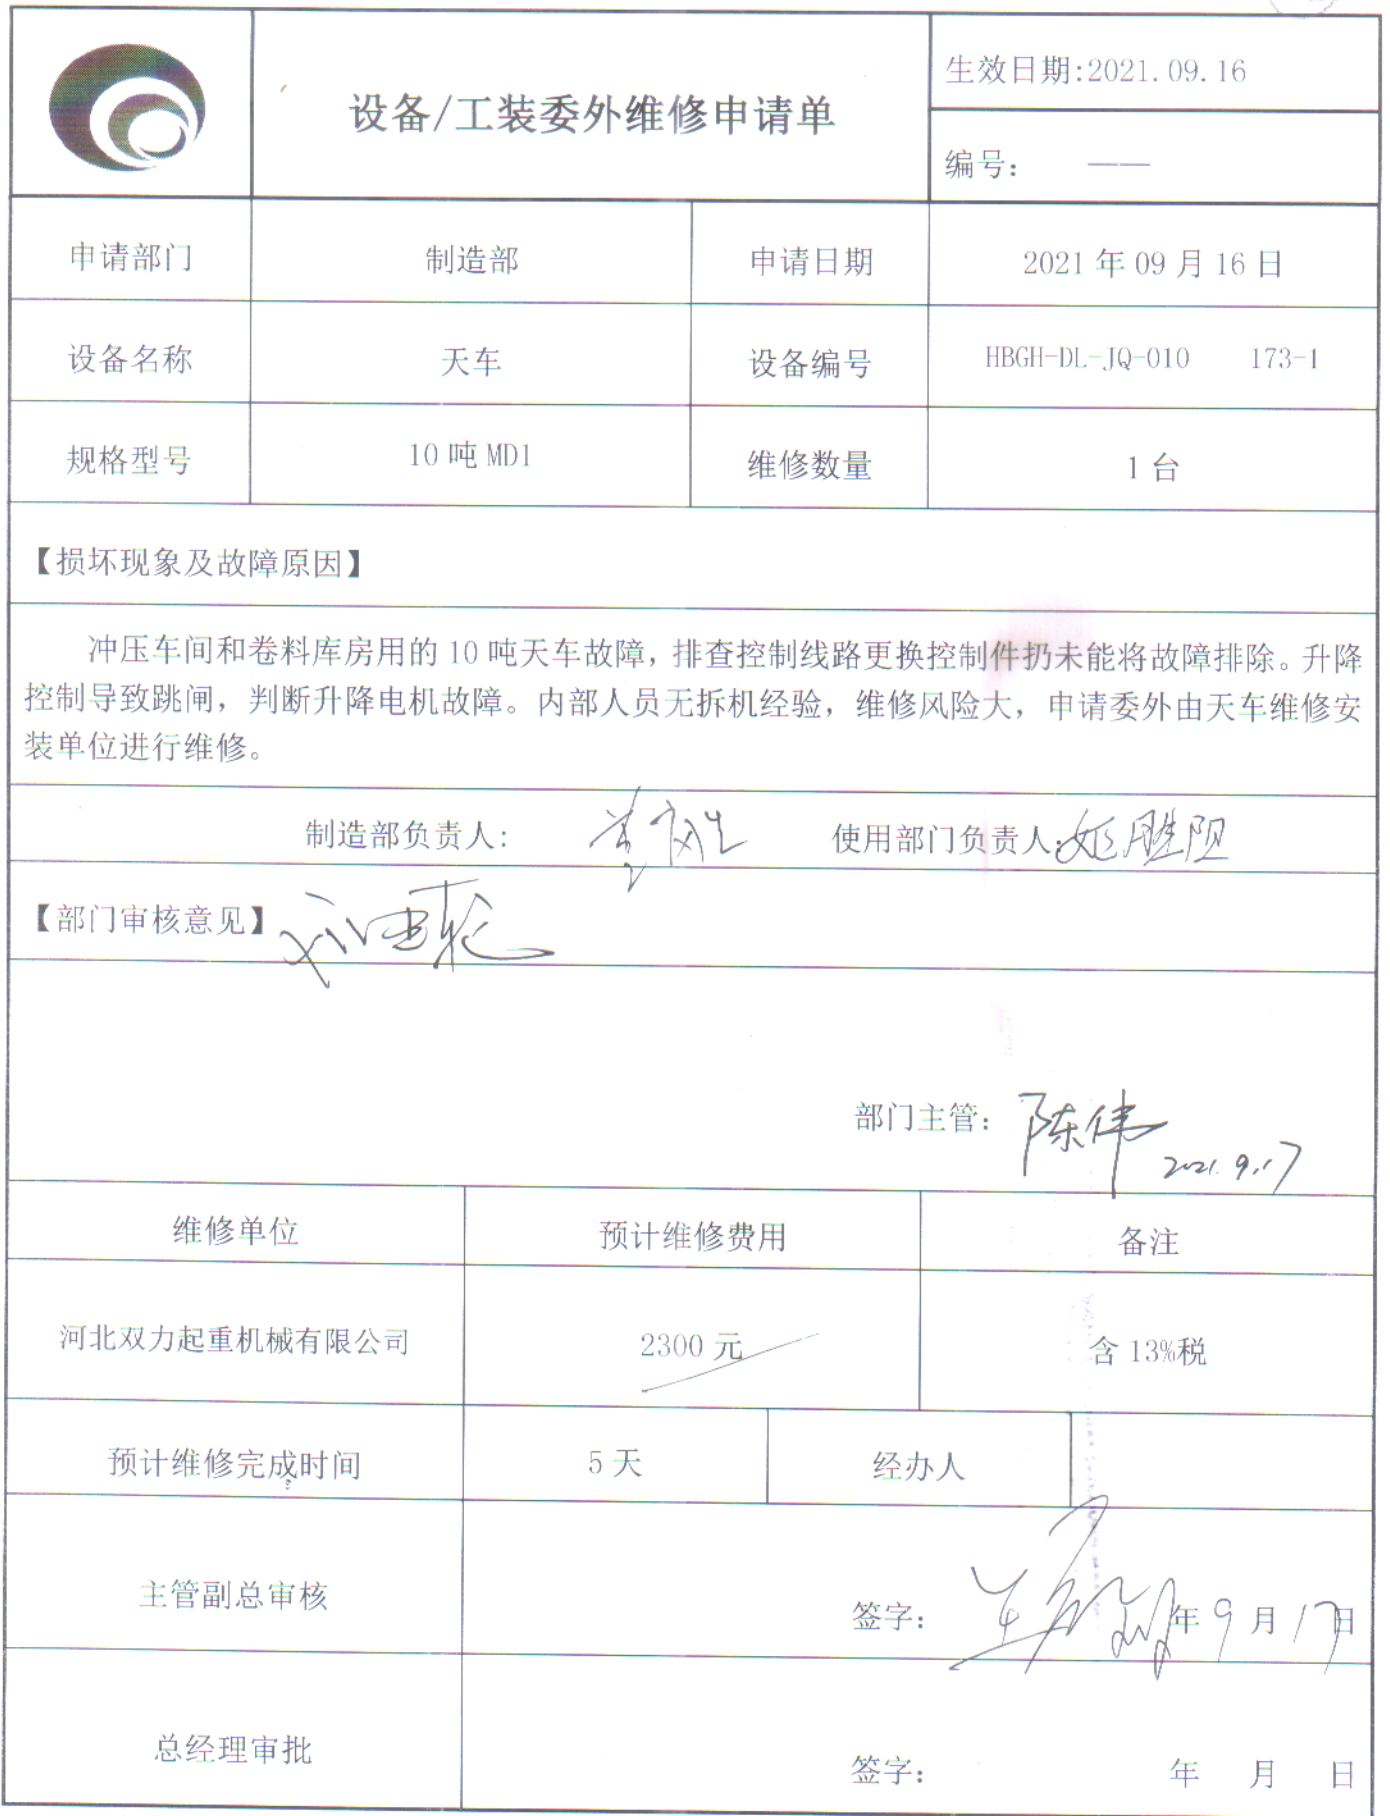 设备/工装委外维修申请单
生效日期:2021.09.16
编号: ——
申请部门 制造部 申请日期 2021年09月16日
设备名称 天车 设备编号 HBGH-DL-JQ-010 173-1
规格型号 10吨MD1 维修数量 1台
【损坏现象及故障原因】
冲压车间和卷料库房用的10吨天车故障，排查控制线路更换控制件扔未能将故障排除。升降
控制导致跳闸，判断升降电机故障。内部人员无拆机经验，维修风险大，申请委外由天车维修安
装单位进行维修。
制造部负责人: 使用部门负责人:
【部门审核意见】
部门主管: 陈伟
2021.9.17
维修单位 预计维修费用 备注
河北双力起重机械有限公司 2300元 含13%税
预计维修完成时间 5天 经办人
主管副总审核 签字: 年9月17日
总经理审批 签字: 年 月 日